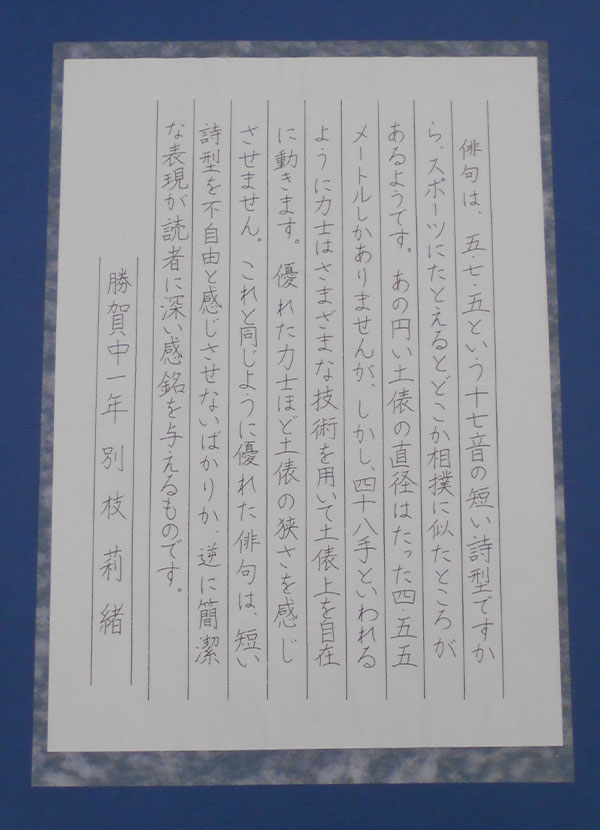 俳句は、五・七・五という十七音の短い詩型ですか
ら、スポーツにたとえるとどこか相撲に似たところが
あるようです。あの円い土俵の直径はたった四・五五
メートルしかありませんが、しかし、四十八手といわれる
ように力士はさまざまな技術を用いて土俵上を自在
に動きます。優れた力士ほど土俵の狭さを感じ
させません。これと同じように優れた俳句は、短い
詩型を不自由と感じさせないばかりか、逆に簡潔
な表現が読者に深い感銘を与えるものです。
勝賀中一年 別枝莉緒